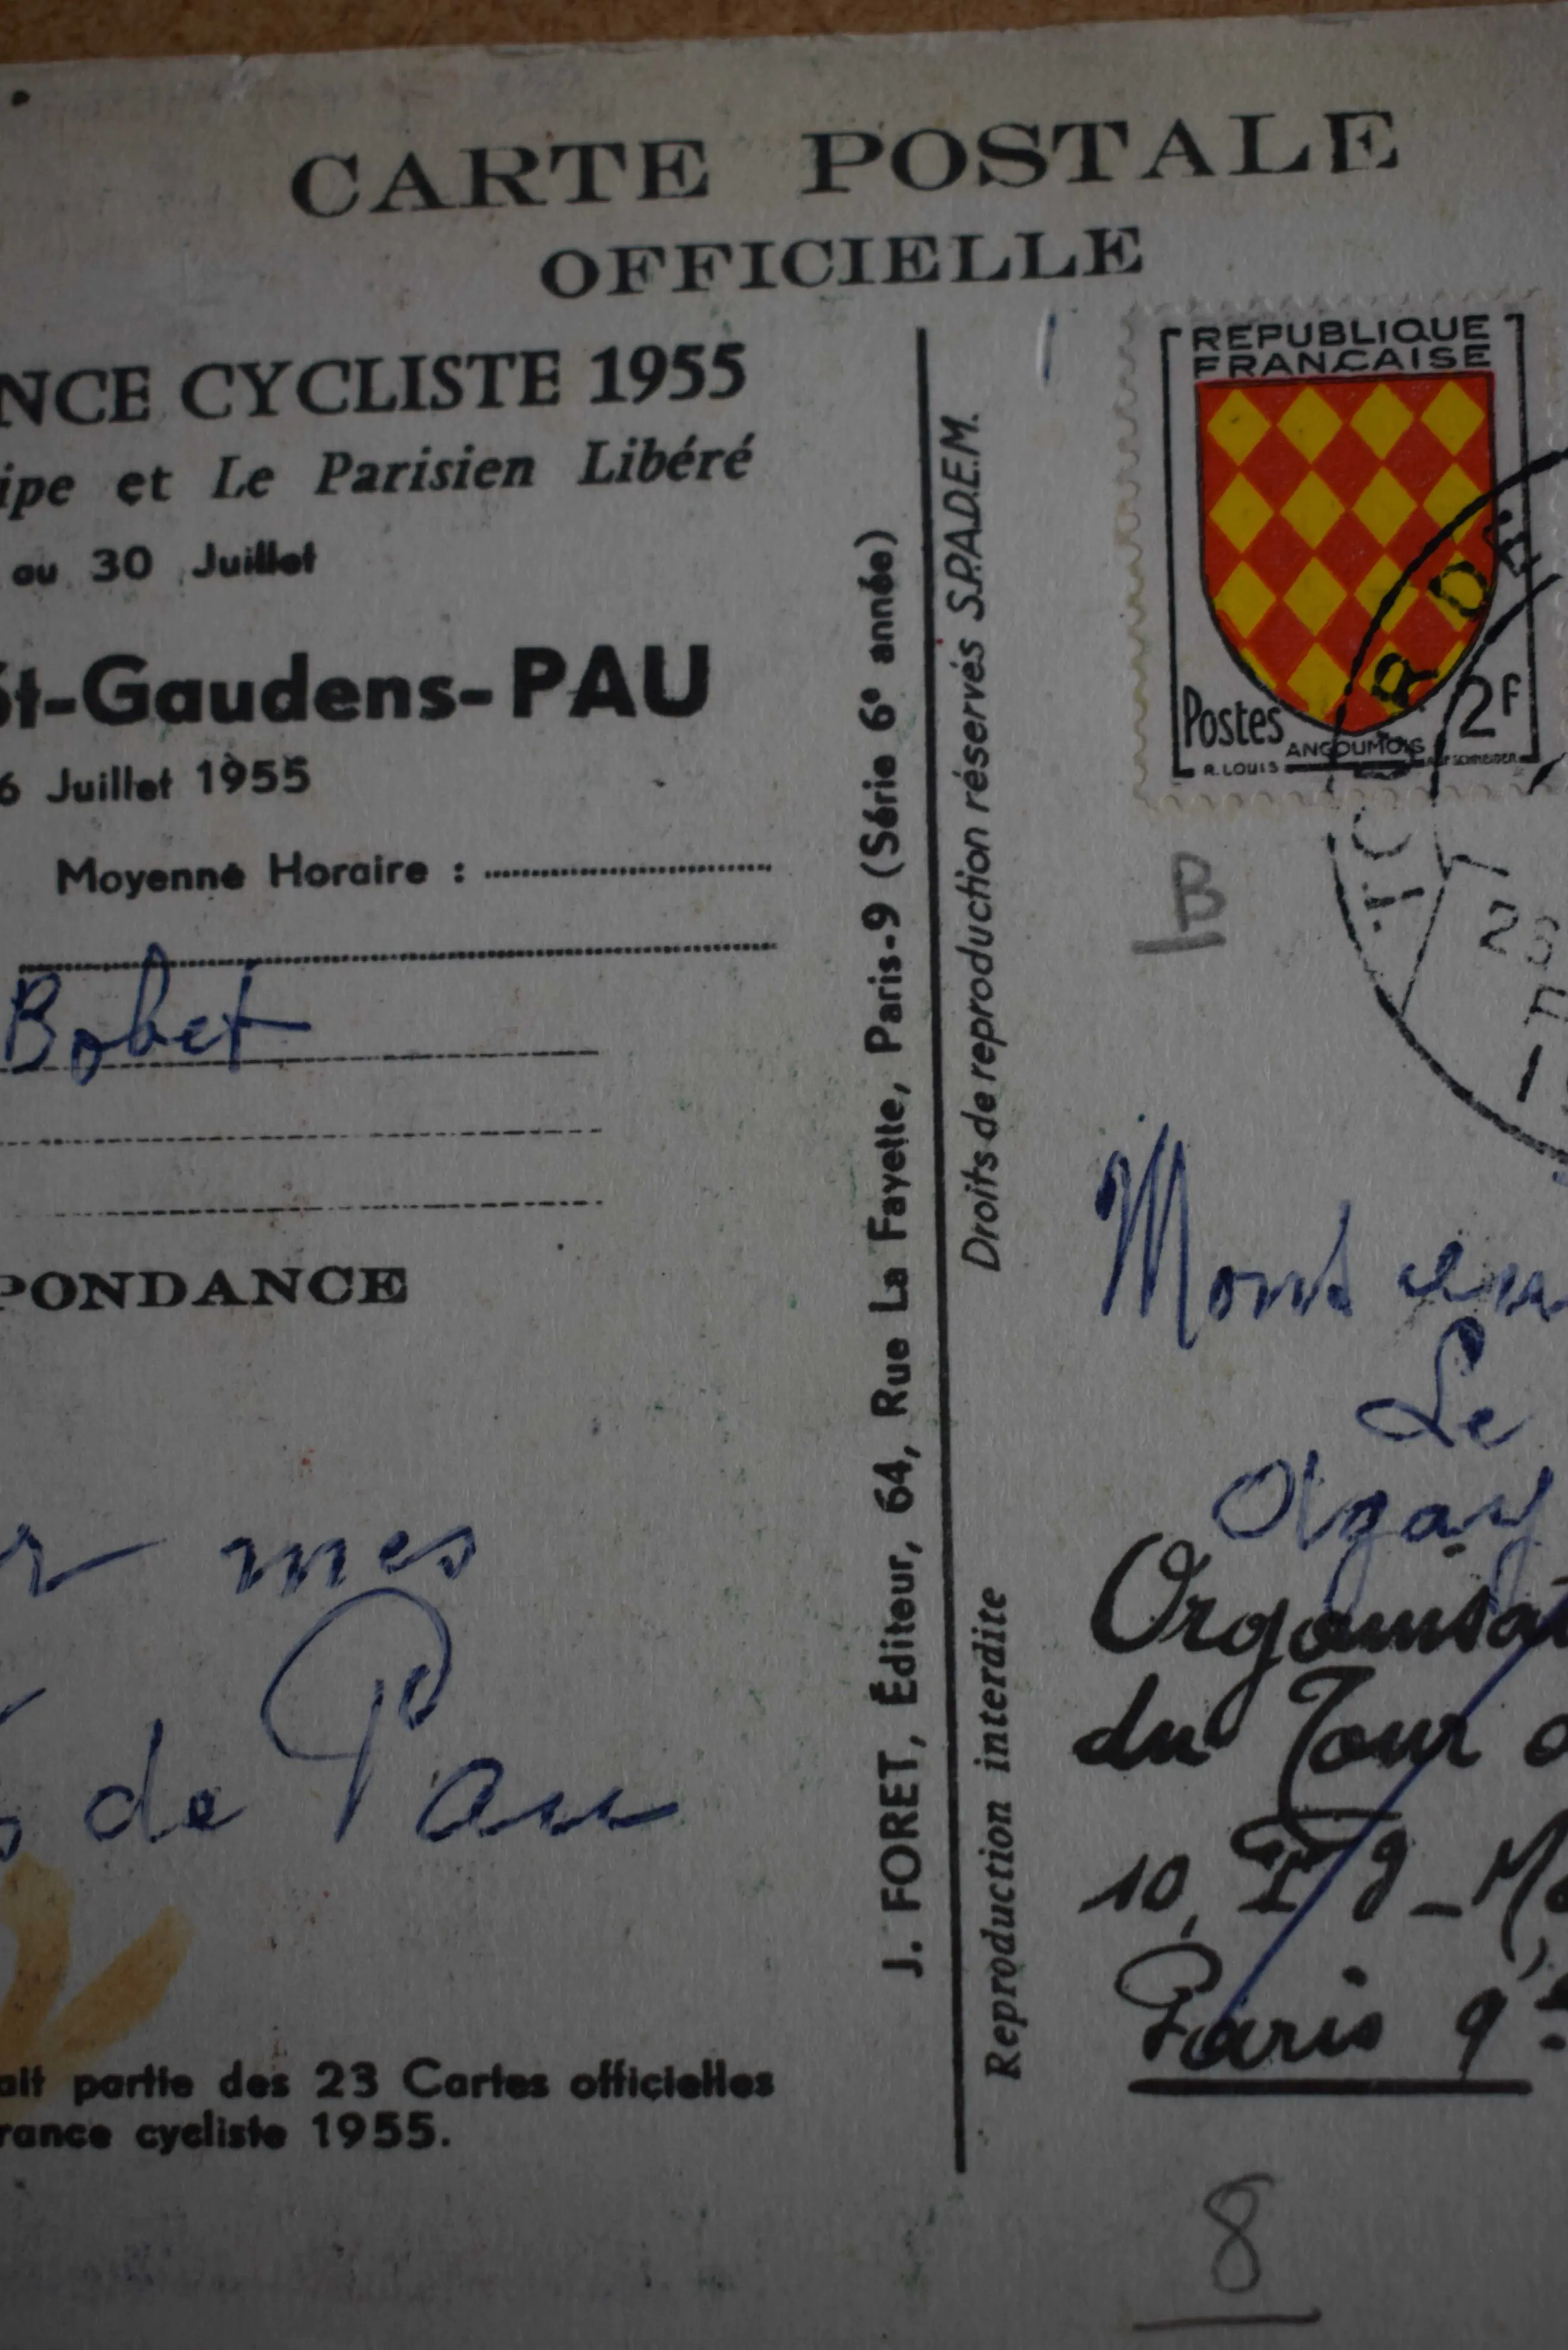 CARTE POSTALE
OFFICIELLE
NCE CYCLISTE 1955
ipe et Le Parisien Libéré
au 30 Juillet
St-Gaudens-PAU
6 Juillet 1955
Moyenne Horaire :
Bobet
PONDANCE
r mes
de Pau
ait partie des 23 Cartes officielles
rance cycliste 1955.
J. FORET, Éditeur, 64, Rue La Fayette, Paris-9 (Série 6e année)
Reproduction interdite Droits de reproduction réservés S.P.A.D.E.M.
REPUBLIQUE
FRANÇAISE
Postes 2F
ANGOUMOIS
R. LOUIS
R D E
B
Le
Organisat
du Tour d
10,
Paris 9
8